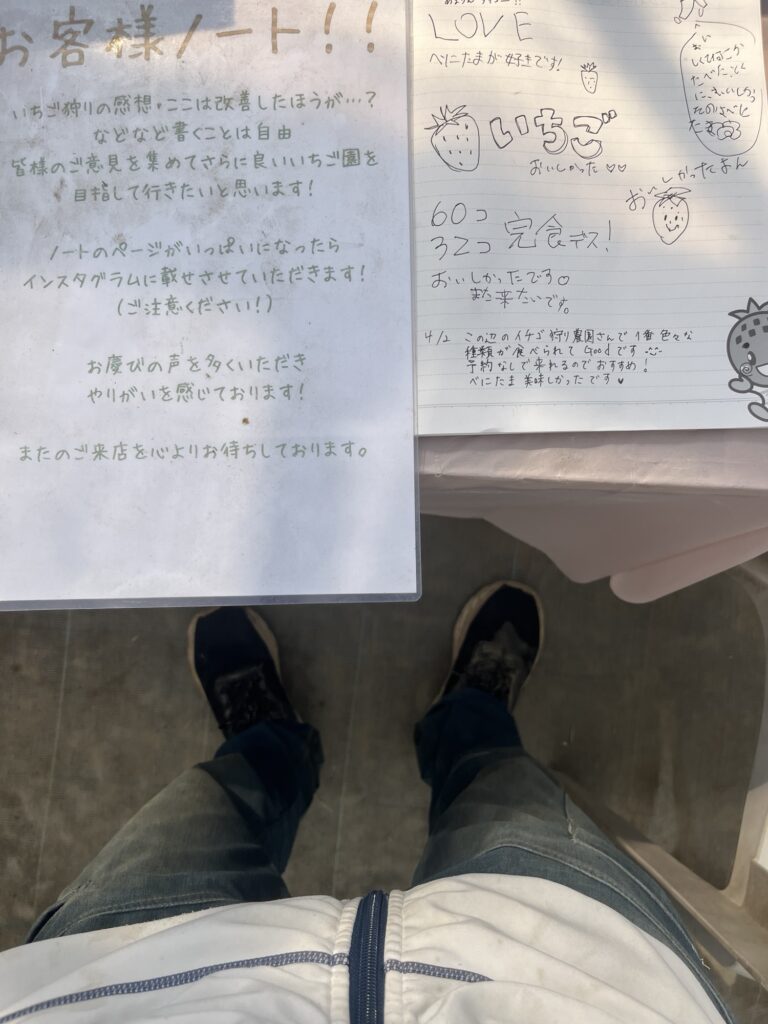 お客様ノート!!
いちご狩りの感想・ここは改善したほうが…?
などなど書くことは自由
皆様のご意見を集めてさらに良いいちご園を
目指して行きたいと思います!
ノートのページがいっぱいになったら
インスタグラムに載せさせていただきます!
(ご注意ください!)
お慶びの声を多くいただき
やりがいを感じております!
またのご来店を心よりお待ちしております。
LOVE
べにたまが好きです!
いちご
おいしかった♡♡
おいしかったよん
60コ
32コ 完食デス!
おいしかったです♡
また来たいです。
4/2 この辺のイチゴ狩り農園さんで1番色々な
種類が食べられてGoodです
予約なしで来れるのでおすすめ!
べにたま美味しかったです♥